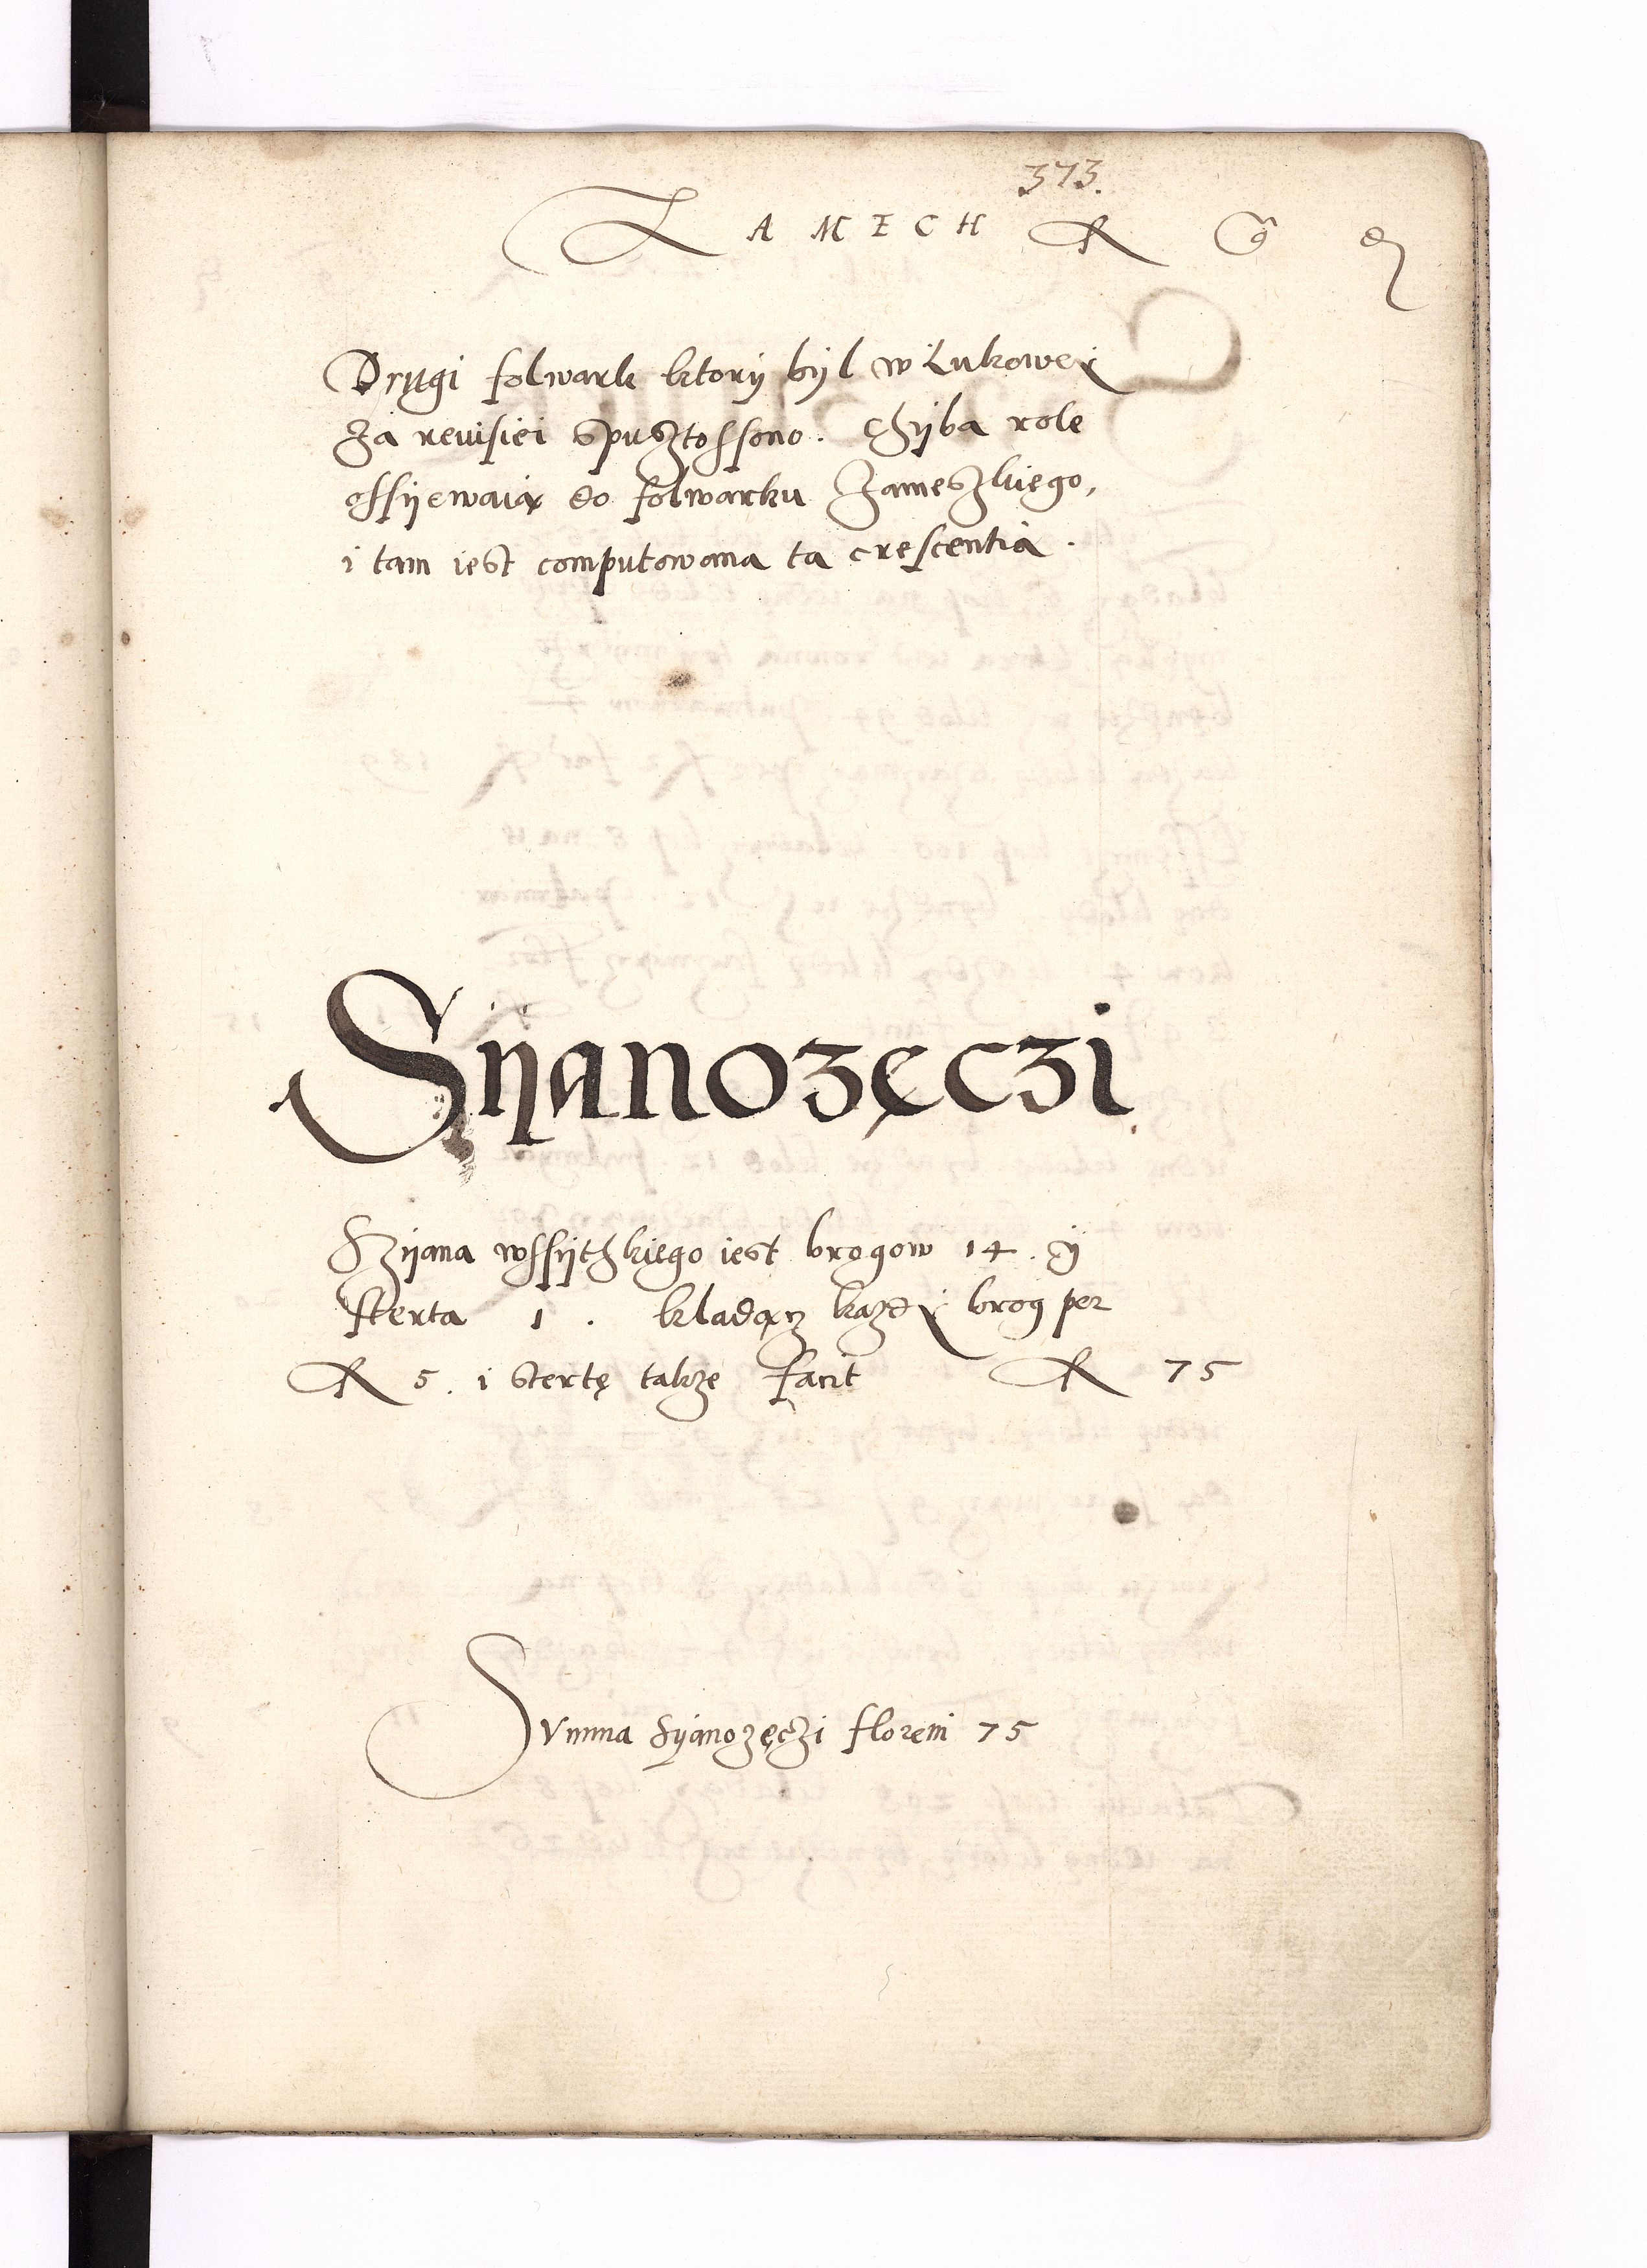 373.
ZAMECH R G d
Drugi folwark ktory byl w Lukowey
Za reuisiei spusztossono. Chyba role
ossyewaią do folwarku Zameszkięgo,
i tam iest computowana ta crescentia.
Syanozęczi
Szyana wssytzkięgo iest brogow 14. y
sterta 1. kladącz kazdy brog per
R 5. i stertę takze facit R 75
Summa syanozęczi floreni 75